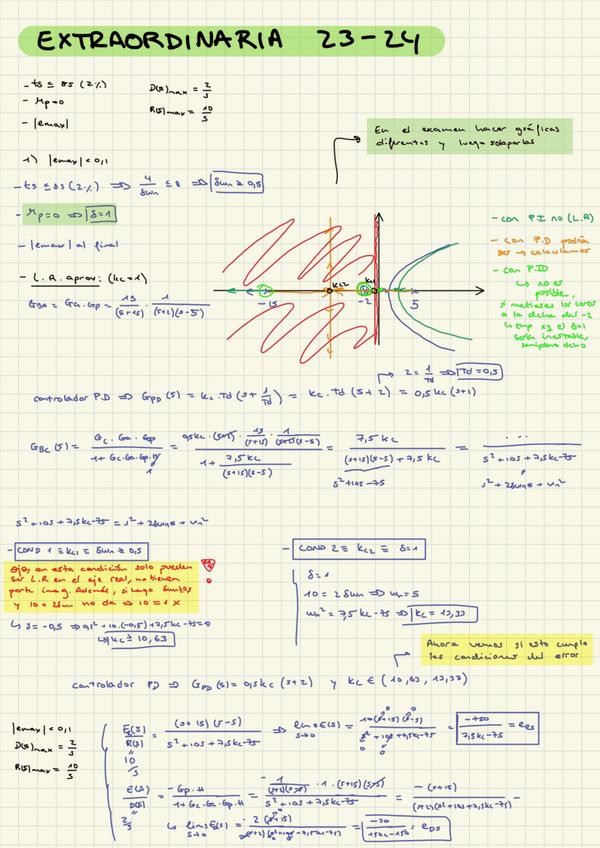 EXTRAORDINARIA 23-24
- ts ≤ 8s (2%)
- Mp=0
- |emax|
D(s)max = 2/s
R(s)max = 10/s
En el examen hacer gráficas
diferentes y luego solaparlas
1) |emax| < 0,1
- ts ≤ 8s (2%) ⟹ 4/δωn ≤ 8 ⟹ δωn ≥ 0,5
- Mp=0 ⟹ δ=1
- |emax| al final
- L.R. aprox: (kc=1)
GBA = Ga·Gp = 15/(s+15) · 1/((s+2)(s-5))
-15
kc2
-2
5
- con P.I. no (L.R)
- con P.D podría
ser → calculamos
- con PID
↳ no es
posible,
si metieses los ceros
a la dcha del -2
semiplano dcho
2 = 1/Td ⟹ Td = 0,5
controlador PD ⟹ GPD(s) = kc·Td(s + 1/Td) = kc·Td(s+2) = 0,5kc(s+2)
GBC(s) = Gc·Ga·Gp / (1+Gc·Ga·Gp·H) = 0,5kc·(s+2)·15/(s+15)·1/((s+2)(s-5)) / (1 + 7,5kc/((s+15)(s-5))) = 7,5kc / ((s+15)(s-5)+7,5kc) = ... / (s²+10s+7,5kc-75)
s²+10s-75
s²+2δωns+ωn²
s²+10s+7,5kc-75 = s²+2δωns+ωn²
- COND 1 ≡ kc1 ≡ δωn ≥ 0,5
Ojo, en esta condición solo pueden
ser L.R en el eje real, no tienen
parte imag. Además, si hago
y 10 = 2δωn no da ⟹ 10=1 X
↳ s = -0,5 ⟹ 0,5²+10·(-0,5)+7,5kc-75=0
↳ kc ≥ 10,63
- COND 2 ≡ kc2 ≡ δ=1
δ=1
10 = 2δωn ⟹ ωn=5
ωn² = 7,5kc-75 ⟹ kc = 13,33
Ahora vemos si esto cumple
las condiciones del error
controlador PD ⟹ GPD(s) = 0,5kc(s+2) y kc ∈ (10,63, 13,33)
|emax| < 0,1
D(s)max = 2/s
R(s)max = 10/s
E(s)/R(s) = (s+15)(s-5) / (s²+10s+7,5kc-75) ⟹ lim s·E(s) s→0 = 10(s+15)(s-5) / (s²+10s+7,5kc-75) = -750/(7,5kc-75) = eRs
10/s
E(s)/D(s) = -Gp·H / (1+Gc·Ga·Gp·H) = -1/((s+2)(s-5)) · 1 · (s+15)(s-5) / (s²+10s+7,5kc-75) = -(s+15) / ((s+2)(s²+10s+7,5kc-75)) =
2/s ↳ lim s·E(s) s→0 = 2(s+15) / ((s+2)(s²+10s+7,5kc-75)) = -30/(15kc-150) = eDs